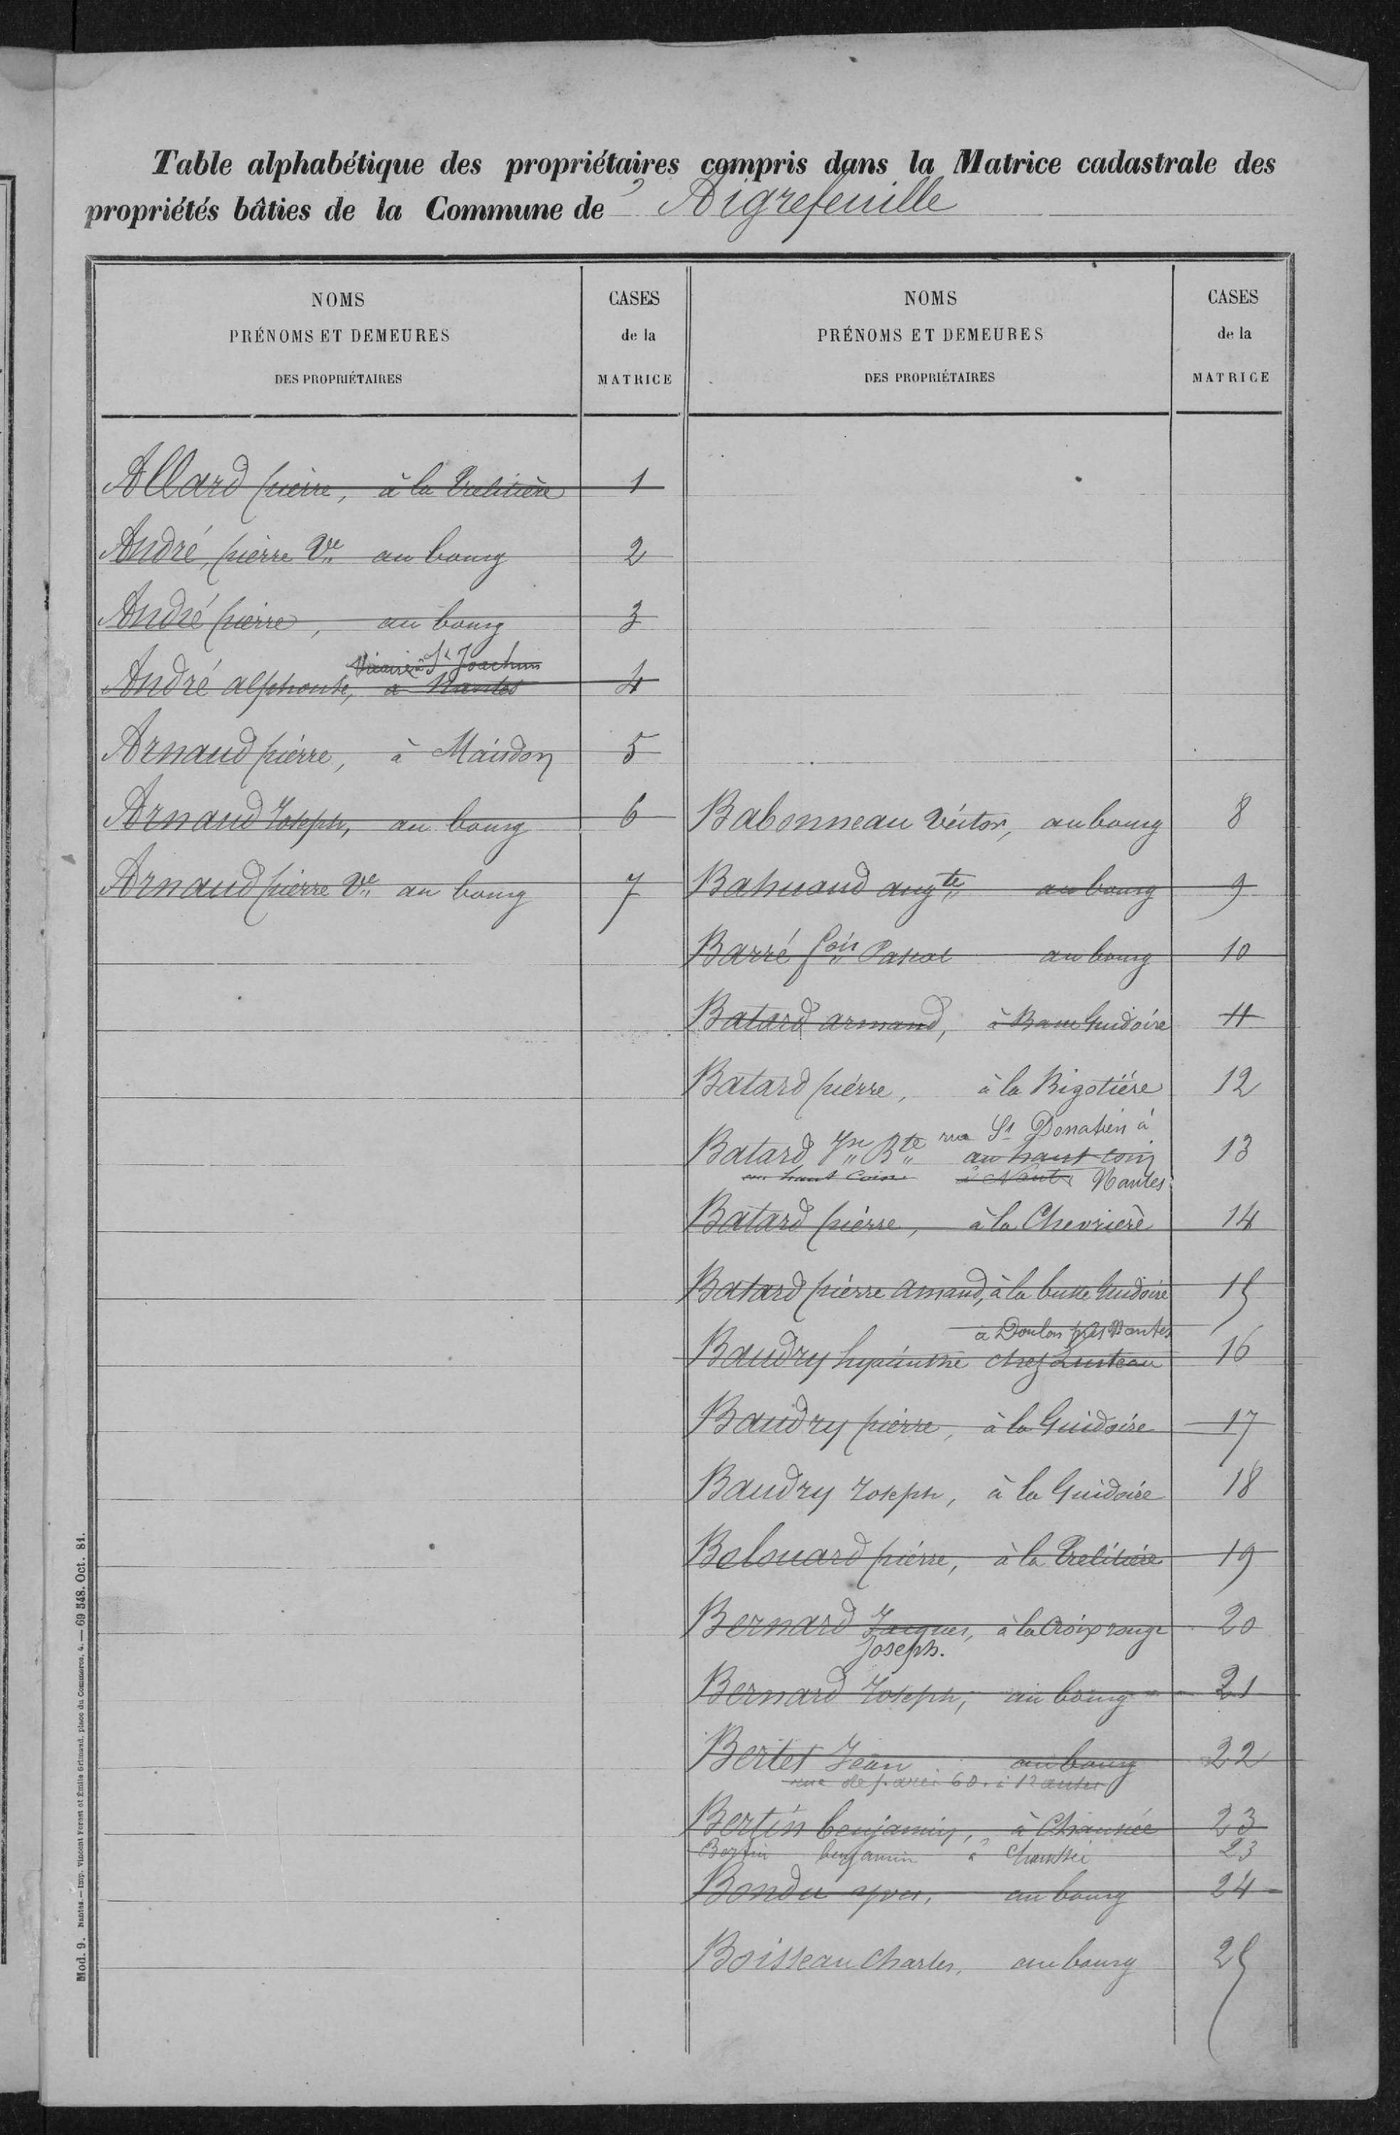 Table alphabétique des propriétaires compris dans la Matrice cadastrale des
propriétés bâties de la Commune de Aigrefeuille
NOMS
PRÉNOMS ET DEMEURES
DES PROPRIÉTAIRES
CASES
de la
MATRICE
NOMS
PRÉNOMS ET DEMEURES
DES PROPRIÉTAIRES
CASES
de la
MATRICE
Allard pierre, à la Trelitière 1
André, pierre Vve au bourg 2
André pierre, au bourg 3
Vicaire à St Joachim
André alphonse, à Nantes 4
Arnaud pierre, à Maisdon 5
Arnaud Joseph, au bourg 6
Arnaud pierre Vve au bourg 7
Babonneau Victor, au bourg 8
Bahuaud augte au bourg 9
Barré fois Pascal au bourg 10
Batard armand, à Guidoire 11
Batard pierre, à la Bigotière 12
rue St Donatien à
Batard Jn Bte au haut coin 13
au haut Coin à Nantes Nantes
Batard pierre, à la Chevrière 14
Batard pierre amand, à la butte Guidoire 15
à Doulon près Nantes
Baudry hyacinthe chez 16
Baudry pierre, à la Guidoire 17
Baudry Joseph, à la Guidoire 18
Belouard pierre, à la Trelitière 19
Bernard Jacques, à la Croix rouge 20
Joseph.
Bernard Joseph, au bourg 21
Bertet Jean au bourg 22
rue de paris 60 à Nantes
Bertin benjamin, à Chaussée 23
Bertin benjamin à Chaussée 23
Bondu yves, au bourg 24
Boisseau charles, au bourg 25
Mod. 9. Nantes. — Imp. Vincent Forest et Émile Grimaud, place du Commerce, 4. — 69 548. Oct. 81.